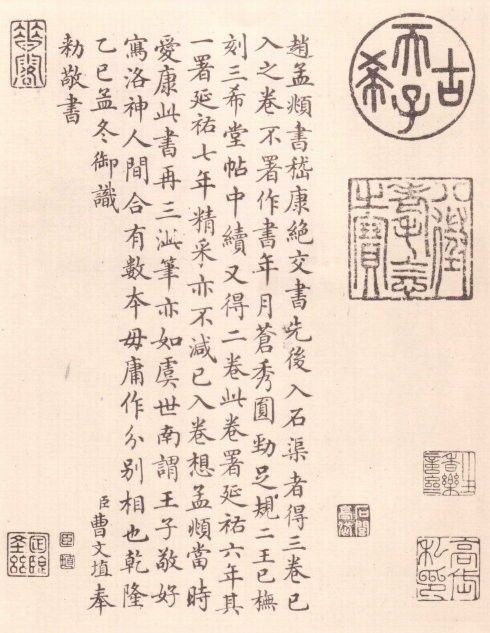 古希天子
八徵耄念之寶
趙孟頫書嵇康絕交書先後入石渠者得三卷已
入之卷不署作書年月蒼秀圓勁足規二王已橅
刻三希堂帖中續又得二卷此卷署延祐六年其
一署延祐七年精采亦不減已入卷想孟頫當時
愛康此書再三泚筆亦如虞世南謂王子敬好
寫洛神人間合有數本毋庸作分別相也乾隆
乙巳孟冬御識
臣曹文埴奉
勅敬書